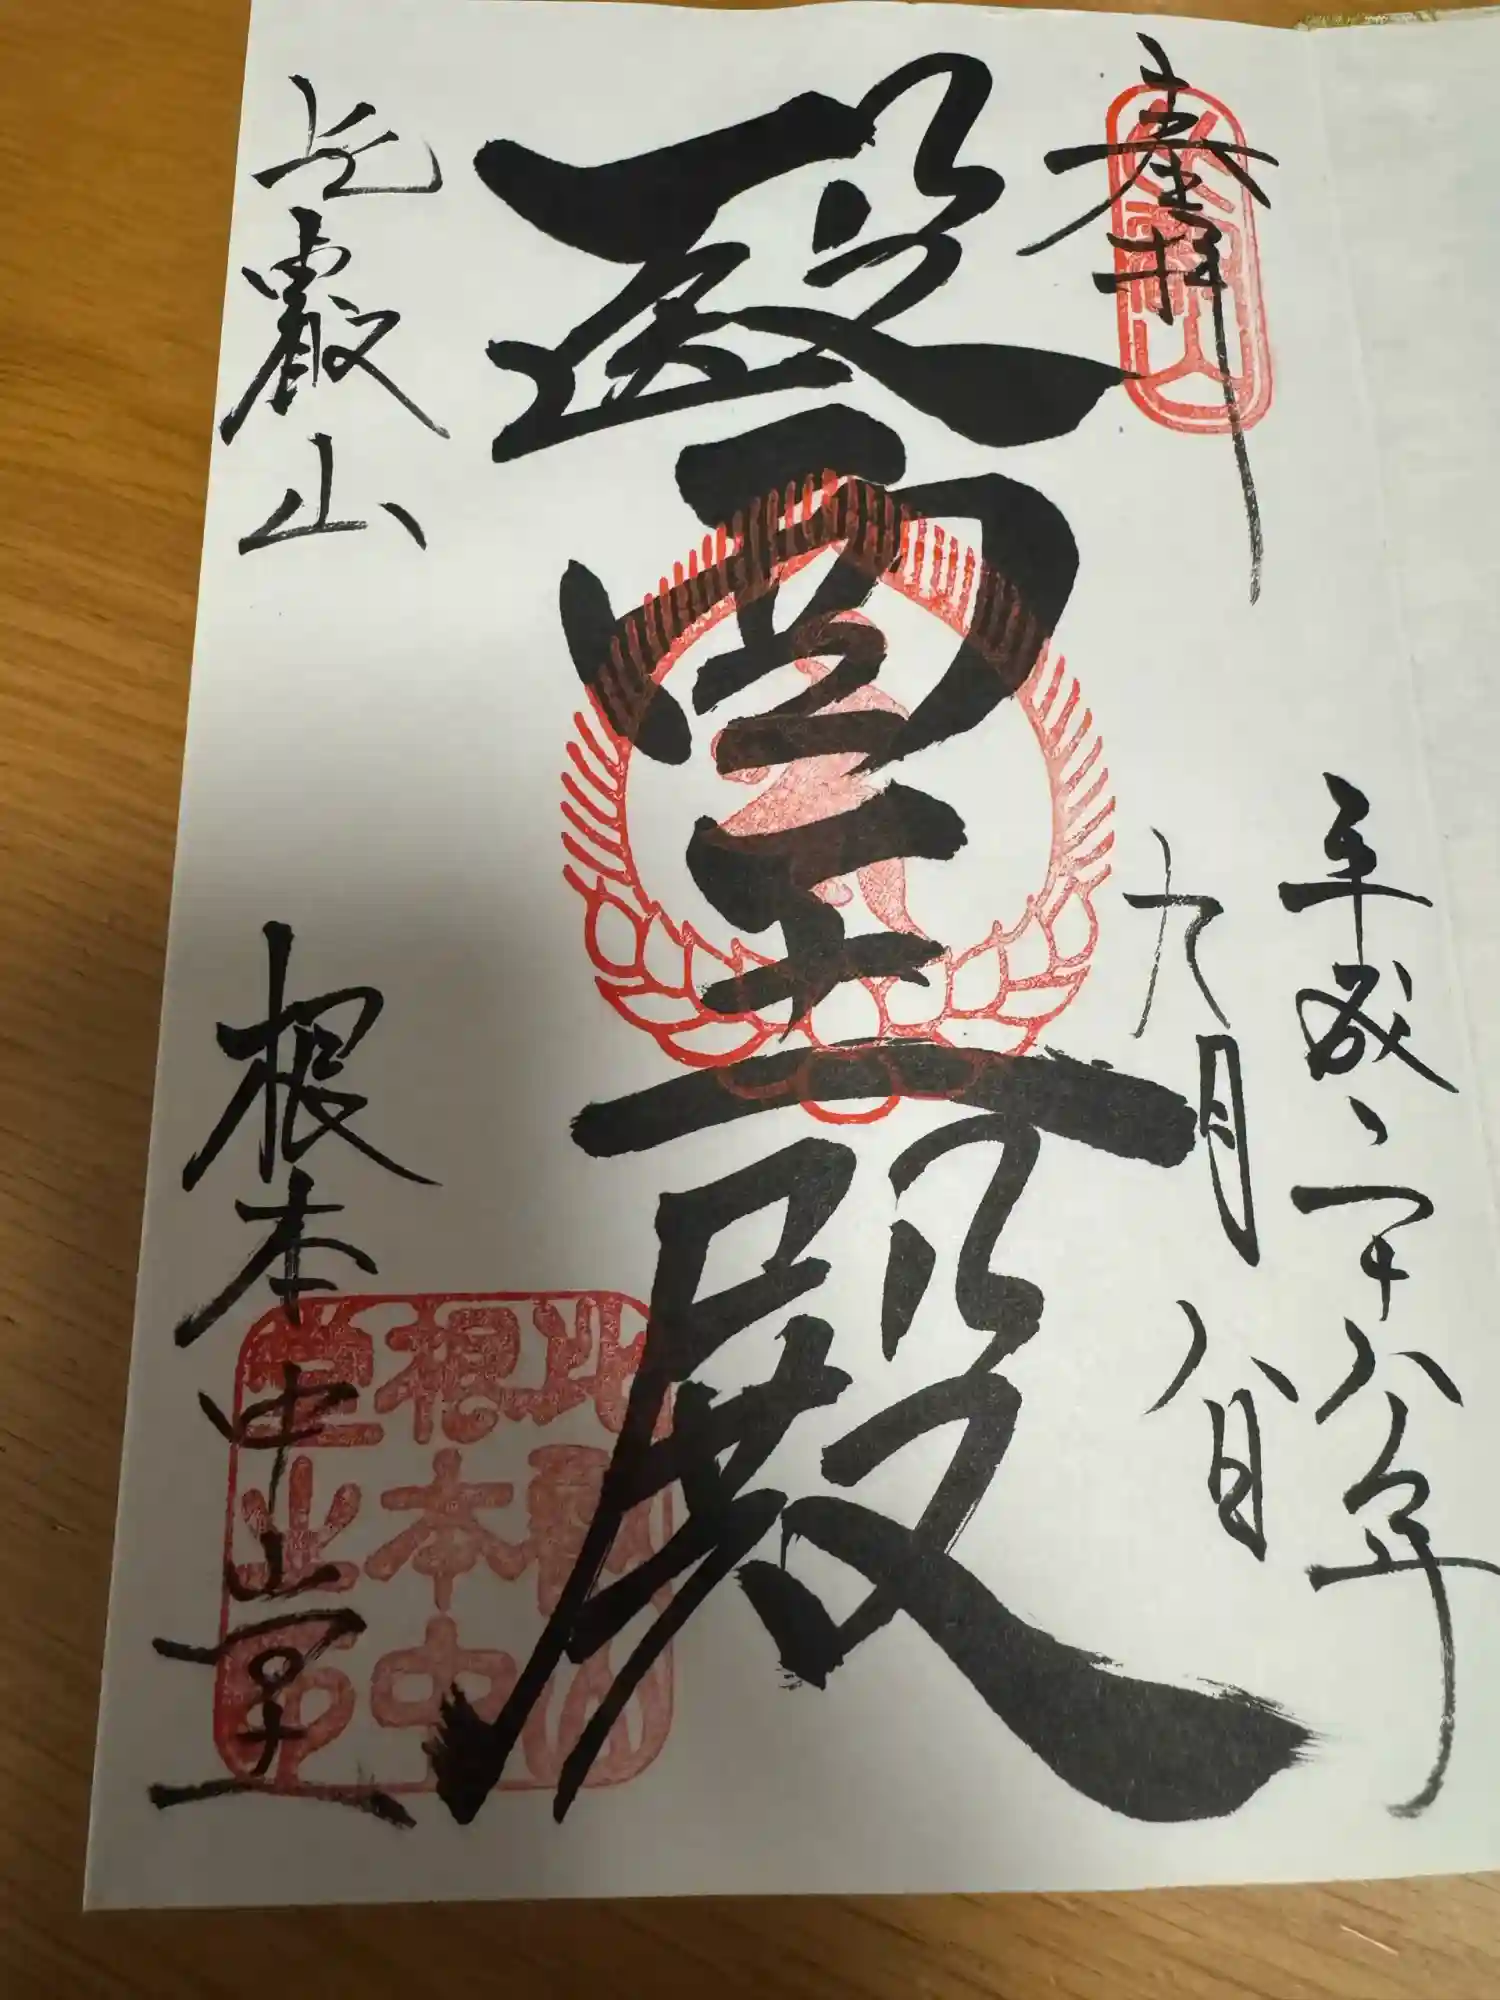 奉拝
平成二十八年
九月八日
醫王殿
比叡山
根本中堂
比叡山
根本中
堂之印